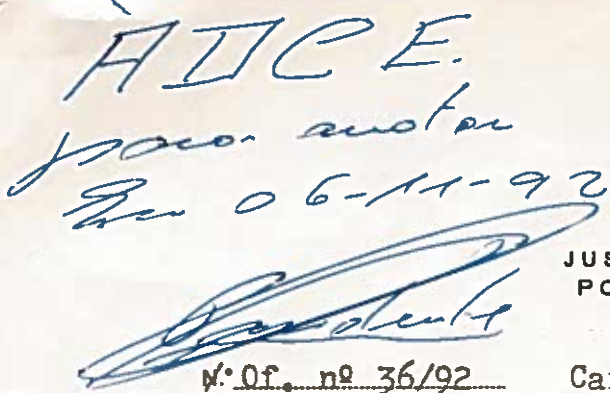 À DCE.
para anotar
Em 06-11-92
JUS
PO
N.º Of. nº 36/92 Ca